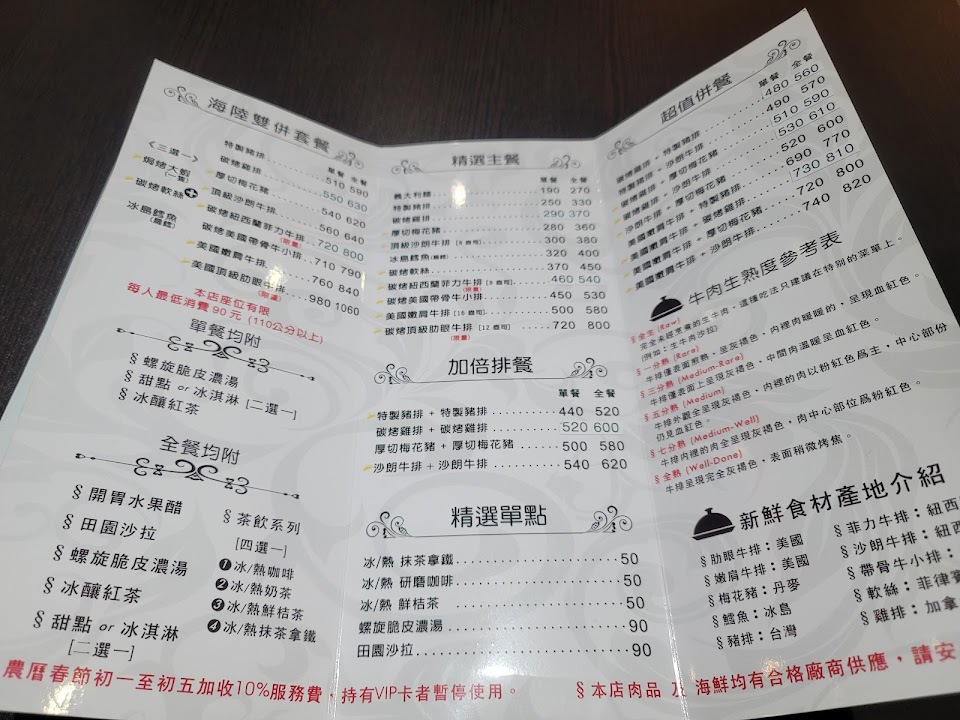 海陸雙併套餐
〈三選一〉
焗烤大蝦
(二隻)
碳烤軟絲
冰島鱈魚
(扁鱈)
單餐 全餐
特製豬排 510 590
碳烤雞排 550 630
厚切梅花豬 540 620
頂級沙朗牛排 560 640
碳烤紐西蘭菲力牛排 720 800
(限量)
碳烤美國帶骨牛小排 710 790
美國嫩肩牛排 760 840
美國頂級肋眼牛排 980 1060
(限量)
本店座位有限
每人最低消費90元 (110公分以上)
單餐均附
§螺旋脆皮濃湯
§甜點 or 冰淇淋 [二選一]
§冰釀紅茶
全餐均附
§開胃水果醋
§田園沙拉
§螺旋脆皮濃湯
§冰釀紅茶
§甜點 or 冰淇淋
[二選一]
§茶飲系列
[四選一]
❶冰/熱咖啡
❷冰/熱奶茶
❸冰/熱鮮桔茶
❹冰/熱抹茶拿鐵
精選主餐
單餐 全餐
義大利麵 190 270
特製豬排 250 330
碳烤雞排 290 370
厚切梅花豬 280 360
頂級沙朗牛排 [8 盎司] 300 380
冰島鱈魚(扁鱈) 320 400
碳烤軟絲 370 450
碳烤紐西蘭菲力牛排 [8 盎司] 460 540
(限量)
碳烤美國帶骨牛小排 450 530
美國嫩肩牛排 [16 盎司] 500 580
碳烤頂級肋眼牛排 [12 盎司] 720 800
(限量)
加倍排餐
單餐 全餐
特製豬排 + 特製豬排 440 520
碳烤雞排 + 碳烤雞排 520 600
厚切梅花豬 + 厚切梅花豬 500 580
沙朗牛排 + 沙朗牛排 540 620
精選單點
冰/熱 抹茶拿鐵 50
冰/熱 研磨咖啡 50
冰/熱 鮮桔茶 50
螺旋脆皮濃湯 90
田園沙拉 90
超值併餐
單餐 全餐
碳烤雞排 + 特製豬排 480 560
特製豬排 + 沙朗牛排 490 570
510 590
碳烤雞排 + 沙朗牛排 530 610
520 600
美國嫩肩牛排 + 特製豬排 690 770
美國嫩肩牛排 + 碳烤雞排 730 810
美國嫩肩牛排 + 厚切梅花豬 720 800
美國嫩肩牛排 + 沙朗牛排 740 820
牛肉生熟度參考表
§全生 (Raw)
完全未經烹煮的生牛肉，這種吃法只建議在特別的菜單上。
(例如：生牛肉沙拉)
§一分熟 (Rare)
牛排僅表面煎熟，呈灰褐色，內裡肉暖暖的，呈現血紅色。
§三分熟 (Medium-Rare)
牛排僅表面上呈現灰褐色，中間肉溫暖呈血紅色。
§五分熟 (Medium)
牛排外觀全呈現灰褐色，內裡的肉以粉紅色爲主，中心部份
仍見血紅色。
§七分熟 (Medium-Well)
牛排內裡的肉全呈現灰褐色，肉中心部位爲粉紅色。
§全熟 (Well-Done)
牛排呈現完全灰褐色，表面稍微烤焦。
新鮮食材產地介紹
§肋眼牛排：美國
§嫩肩牛排：美國
§梅花豬：丹麥
§鱈魚：冰島
§豬排：台灣
§菲力牛排：紐西
§沙朗牛排：紐西
§帶骨牛小排：
§軟絲：菲律賓
§雞排：加拿
農曆春節初一至初五加收10%服務費，持有VIP卡者暫停使用。
§本店肉品 及 海鮮均有合格廠商供應，請安